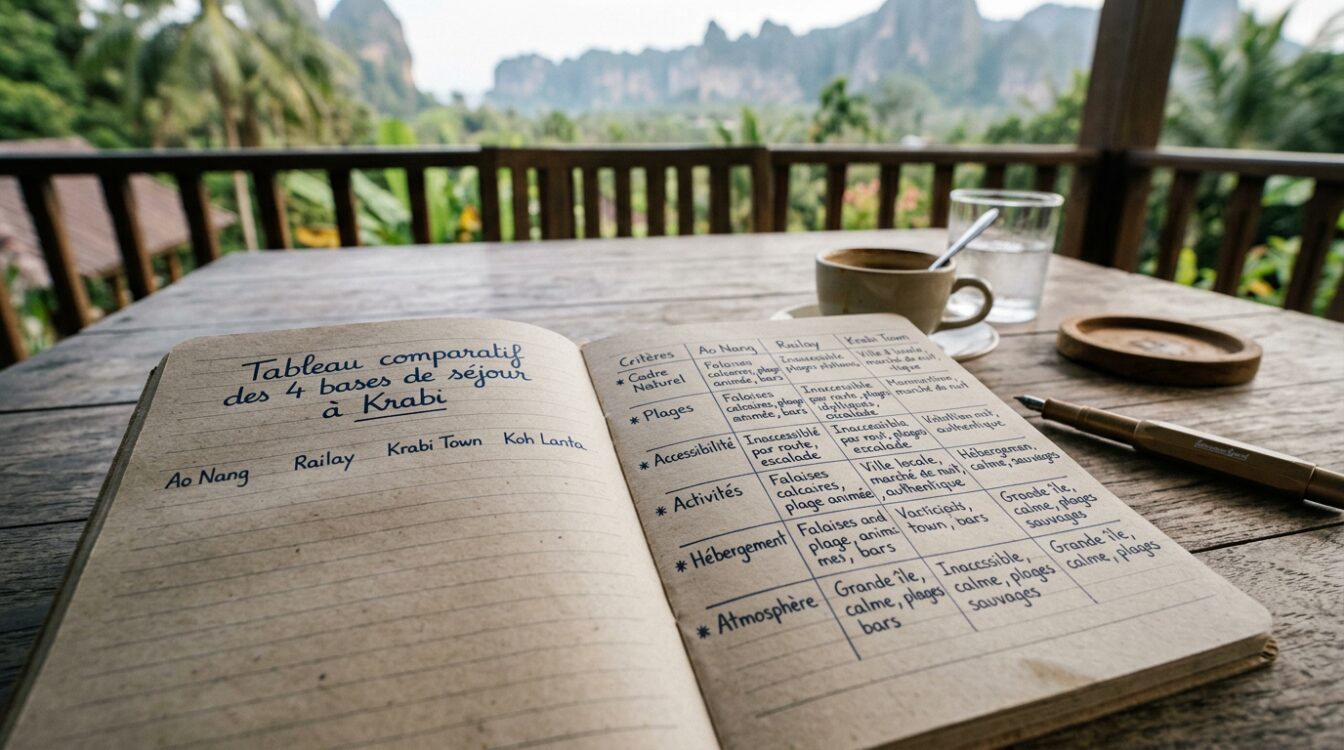 Tableau comparatif
des 4 bases de séjour
à Krabi
Ao Nang Railay Krabi Town Koh Lanta
Critères Ao Nang Railay Krabi Town
* Cadre
Naturel
Falaises
calcaires, plage
animée, bars
Inaccessible
plages
Ville locale,
marché de nuit
* Plages
Falaises
calcaires, plage
animée, bars
Inaccessible
par route, plages
idylliques,
escalade
marché de nuit
* Accessibilité
Inaccessible
par route,
escalade
par rout, plages
escalade
authentique
* Activités
Falaises
calcaires,
plage animée
Ville locale,
marché de nuit,
, authentique
calme, sauvages
* Hébergement
Falaises and
plage, anim-
mes, bars
town, bars
Grande île,
calme, plages
sauvages
* Atmosphère
Grande île,
calme, plages
bars
calme, plages
sauvages
Grande île,
calme, plages